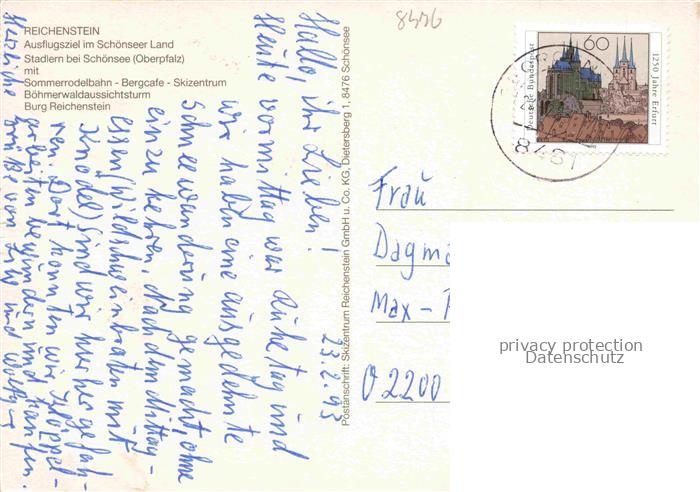 REICHENSTEIN
Ausflugsziel im Schönseer Land
Stadlern bei Schönsee (Oberpfalz)
mit
Sommerrodelbahn - Bergcafe - Skizentrum
Böhmerwaldaussichtsturm
Burg Reichenstein
8476
60
Deutsche Bundespost
1250 Jahre Erfurt
8481
23.2.93
Hallo, ihr Lieben!
Heute vormittag war Ruhetag und
wir haben eine ausgedehnte
Schneewanderung gemacht, ohne
einzukehren. Nach dem Mittag-
essen (Wildschweinbraten mit
Knödel) sind wir hierher gefah-
ren. Dort konnten wir Klöppel-
arbeiten bewundern und kaufen.
Herzliche Grüße von
und
Postanschrift: Skizentrum Reichenstein GmbH u. Co. KG, Dietersberg 1, 8476 Schönsee
Frau
Dagma
Max -
O 2200
privacy protection
Datenschutz